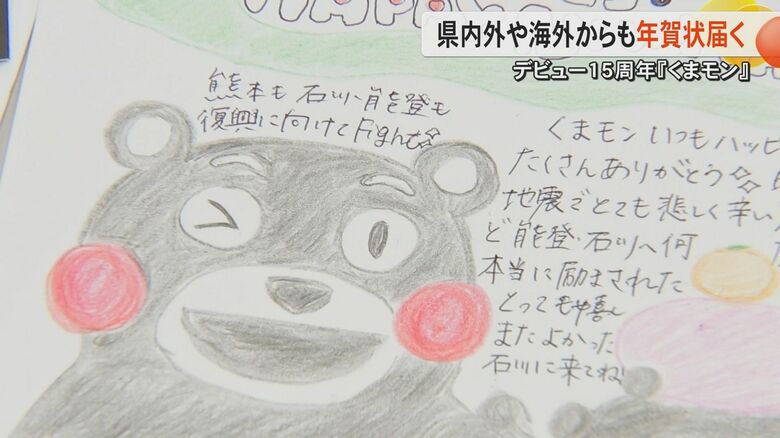 県内外や海外からも年賀状届く
デビュー15周年『くまモン』
熊本も 石川・能登も
復興に向けてFight
くまモン いつもハッピ
たくさんありがとう
地震でとても悲しく辛い
ど 能登・石川へ何
本当に励まされた
とっても喜
またよかった
石川に来てね